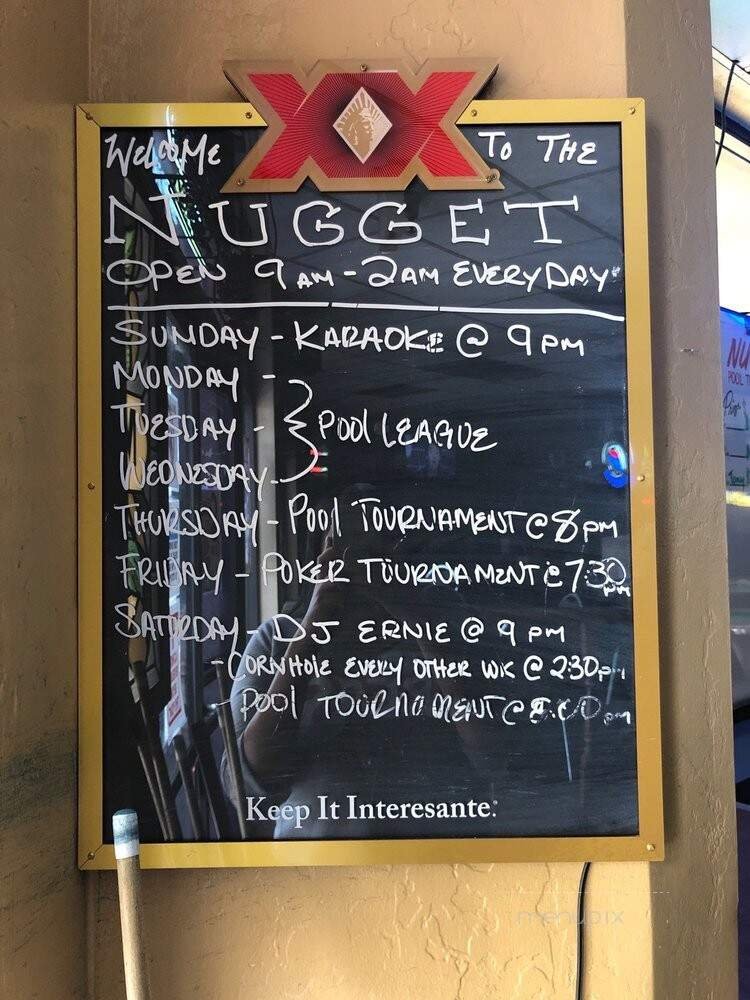 WELCOME XX TO THE
NUGGET
OPEN 9AM-2AM EVERYDAY
SUNDAY - KARAOKE @ 9PM
MONDAY -
TUESDAY - POOL LEAGUE
WEDNESDAY -
THURSDAY - POOL TOURNAMENT @ 8PM
FRIDAY - POKER TOURNAMENT @ 7:30 PM
SATURDAY - DJ ERNIE @ 9 PM
- CORNHOLE EVERY OTHER WK @ 2:30PM
- POOL TOURNAMENT @ PM
Keep It Interesante.
NU
POOL T
menupix